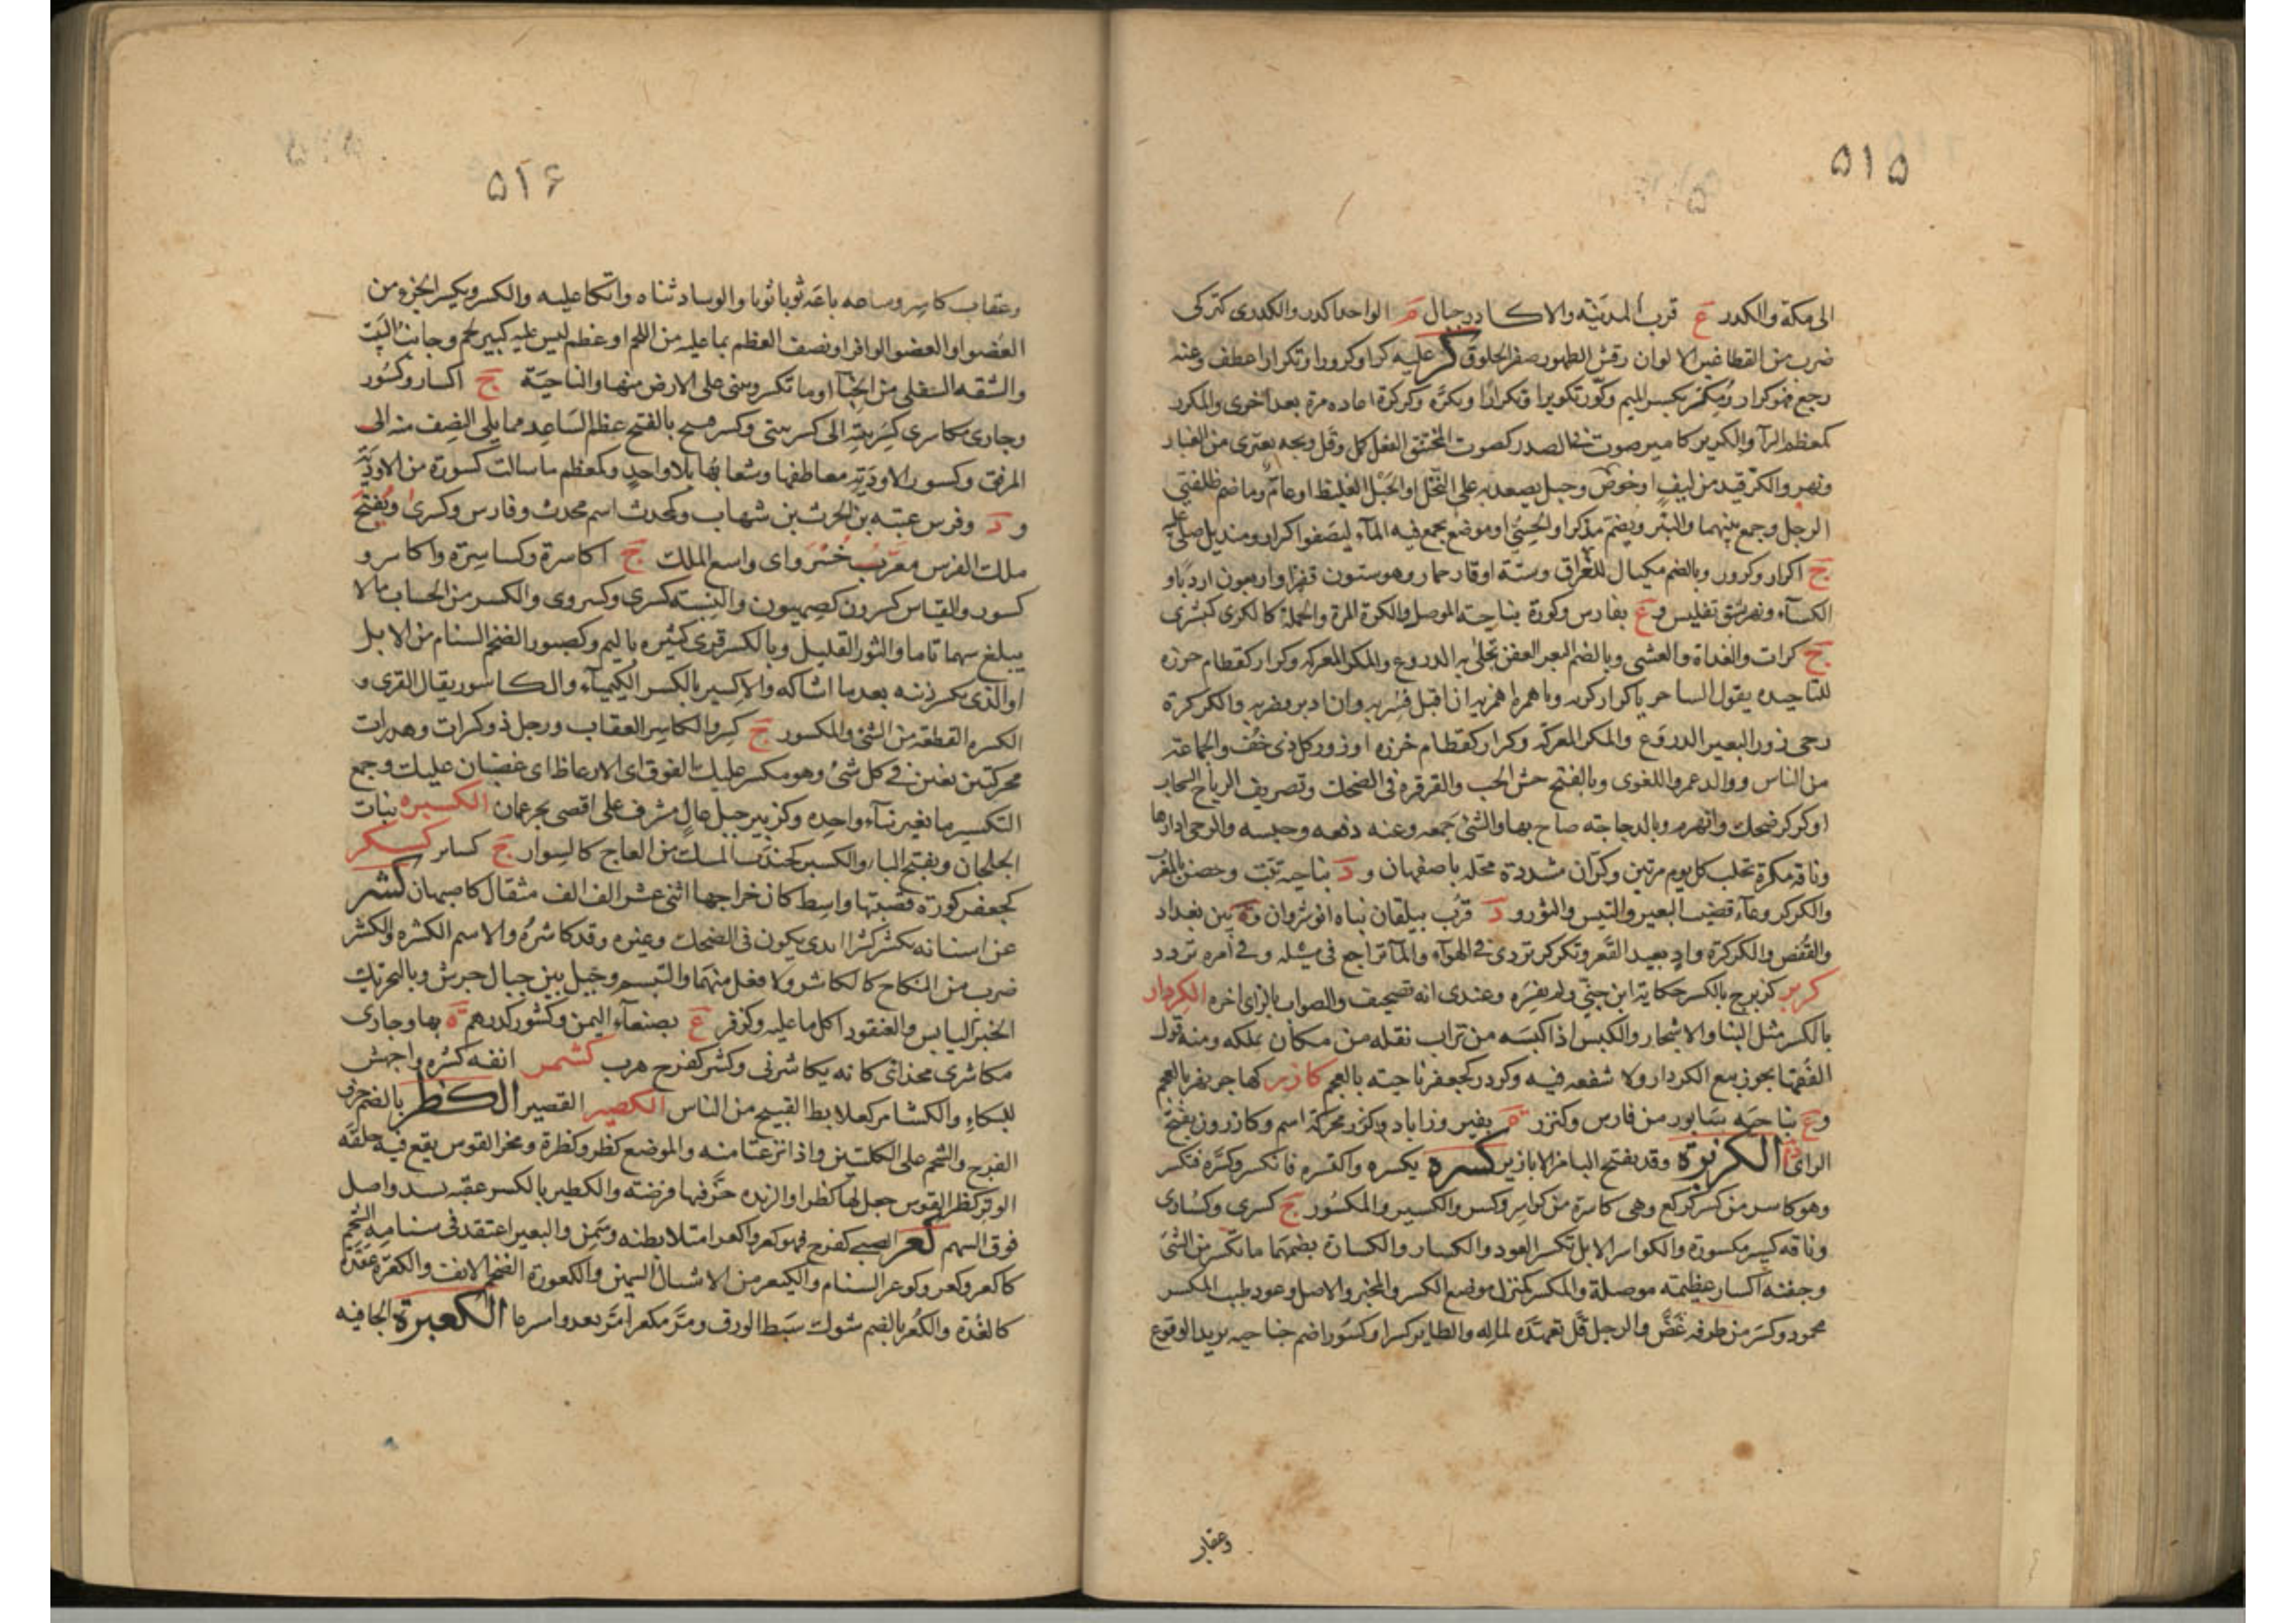 ٥١٥
الى مكة والكدر ع قرب المدينة والاكادر جبال م الواحد اكدر والكدرى كتركى
ضرب من القطا غبر الالوان رقش الظهور صفر الحلوق كر عليه كرا وكرورا وتكرارا عطف وعنه
رجع فهو كرار ومكر بكسر الميم وكرره تكريرا وتكرارا وتكرّه وكركرة اعاده مرة بعد اخرى والمكرر
كمعظم الرآ والكرير كامير صوت فى الصدر كصوت المختنق الفعل كل وقل وبحه يعترى من الغبار
ونهر والكر قيد من ليف او خوص وحبل يصعد به على النخل او الحبل الغليظ او عام وما ضم ظلفتى
الرجل وجمع بينهما والبئر ويضم مذكر او الحسى او موضع يجمع فيه المآء ليصفو اكرار ومنديل يصلى عليه
ج اكرار وكرور وبالضم مكيال للعراق وستة اوقار حمار وهو ستون قفيزا او اربعون اردبا و
الكسآء ونهر يشق تفليس وع بفارس وكورة بناحية الموصل والكرة المرة والحملة كالكرى كبشرى
ج كرات والغداة والعشى وبالضم البعر العفن تجلى به الدروع والمكر المعركة وكرار كقطام خرزه
للتاخيذ يقول الساحر يا كرار كريه ويا همرة اهمريه ان اقبل فسريه وان ادبر فضريه والكركرة
رحى زور البعير الدروع والمكر المعركة وكرار كقطام خرزه او زور كل ذى خف والجماعة
من الناس ووالد عمرو اللغوى وبالفتح جش الحب والقرقرة فى الضحك وتصريف الرياح السحاب
او كركر ضحك وانهزم وبالدجاجة صاح بها والشئ جمعه وعنه دفعه وحبسه والرحى ادارها
وناقة مكرة تحلب كل يوم مرتين وكران مشددة محلة باصفهان ود بناحية تبت وحصن بالمغرب
والكركر وعآء قضيب البعير والتيس والثور ود قرب بيلقان بناه انوشروان وة بين بغداد
والقفص والكركرة واد بعيد القعر وتكركر تردى فى الهوآء والمآء تراجع فى مسيله وفى امره تردد
كربر كزبرج بالكسر حكاية ابن جنى ولم يفسره وعندى انه تصحيف والصواب بالزاى اخره الكردار
بالكسر مثل البنا والاشجار والكبس اذا كبسه من تراب نقله من مكان يملكه ومنه قول
الفقها يجوز بيع الكردار ولا شفعه فيه وكردر كجعفر ناحية بالعجم كازر كهاجر نهر بالعجم
وع بناحية سابور من فارس وكنزر ة بفيروزاباد وكزر محركة اسم وكازرون بفتح
الزاى د الكزبرة وقد تفتح البا من الابازير كسره يكسره واكتسره فانكسر وكسّره فتكسر
وهو كاسر من كسر كركع وهى كاسرة من كواسر وكسر والكسير والمكسور ج كسرى وكسارى
وناقة كسير مكسورة والكواسر الابل تكسر العود والكسار والكسارة بضمهما ما تكسر من الشئ
وجفنة اكسار عظيمة موصلة والمكسر كمنزل موضع الكسر والمخبر والاصل وعود طيب المكسر
محمود وكسر من طرفه غض والرجل قل تعهده لماله والطاير كسرا وكسورا ضم جناحيه يريد الوقوع
وعقاب
٥١٦
وعقاب كاسر ومتاعه باعه ثوبا ثوبا والوساد ثناه واتكا عليه والكسر ويكسر الجزء من
العضو او العضو الوافر او نصف العظم بما عليه من اللحم او عظم ليس عليه كبير لحم وجانب البيت
والشقة السفلى من الخبآ او ما تكسر وتثنى على الارض منها والناحية ج اكسار وكسور
وجارى مكاسرى كسر بيته الى كسر بيتى وكسر قبيح بالفتح عظم الساعد مما يلى النصف منه الى
المرفق وكسور الاودية معاطفها وشعابها بلا واحد وكمعظم ما سالت كسوره من الاودية
ود وفرس عتبة بن الحرث بن شهاب وكمحدث اسم محدث وفارس وكسرى ويفتح
ملك الفرس معرب خسرو اى واسع الملك ج اكاسرة وكساسرة واكاسر و
كسور والقياس كسرون كعيسون والنسبة كسرى وكسروى والكسر من الحساب ما لا
يبلغ سهما تاما والنزر القليل وبالكسر قرى كثيرة باليمن وكصبور الضخم السنام من الابل
او الذى يكسر ذنبه بعد ما اشاله والاكسير بالكسر الكيميآء والكاسور بقال القرى و
الكسرة القطعة من الشئ والمكسور ج كسر والكاسر العقاب ورجل ذو كسرات وهدرات
محركتين يغبن فى كل شئ وهو يكسر عليك الفوق اى الارعاظ اى غضبان عليك وجمع
التكسير ما تغير بنآء واحده وكزبير جبل عال مشرف على اقصى بحر عمان الكسبره نبات
الجلجلان وبفتح الباء والكسبر كجندب المسك من العاج كالسوار ج كسابر كسكر
كجعفر كورة قصبتها واسط كان خراجها اثنى عشر الف الف مثقال كاصبهان كشر
عن اسنانه يكشر كشرا ابدى يكون فى الضحك وغيره وقد كاشره والاسم الكشرة والكشر
ضرب من النكاح كالكاشر ولا فعل منهما والتبسم وجبل بين جبال جرش وبالتحريك
الخبز اليابس والعنقود اكل ما عليه وكزفر ع بصنعآء اليمن وكشور كدرهم ة بها وجارى
مكاشرى محذائى كانه يكاشرنى وكشر كفرح هرب كشمر انفه كسره واجهش
للبكاء والكشامر كعلابط القبيح من الناس الكصير القصير الكظر بالضم حرف
الفرج والشحم على الكليتين واذا نزعتا منه والموضع كظر وكظرة ومحز القوس يقع فيه حلقة
الوتر كظر القوس جعل لها كظرا والزنده حز فيها فرضة والكظير بالكسر عقبة تشد واصل
فوق السهم كعر الصبى كفرح فهو كعر واكعر امتلا بطنه وسمن والبعير اعتقد فى سنامه الشحم
كاكعر وكعر وكوعر السنام والكيعر من الاشبال السمين والكعورة الضخم الانف والكعرة عقدة
كالغدة والكعر بالضم شوك سبط الورق ومر مكعرا مر يعدو اسرعا الكعبرة الجافية